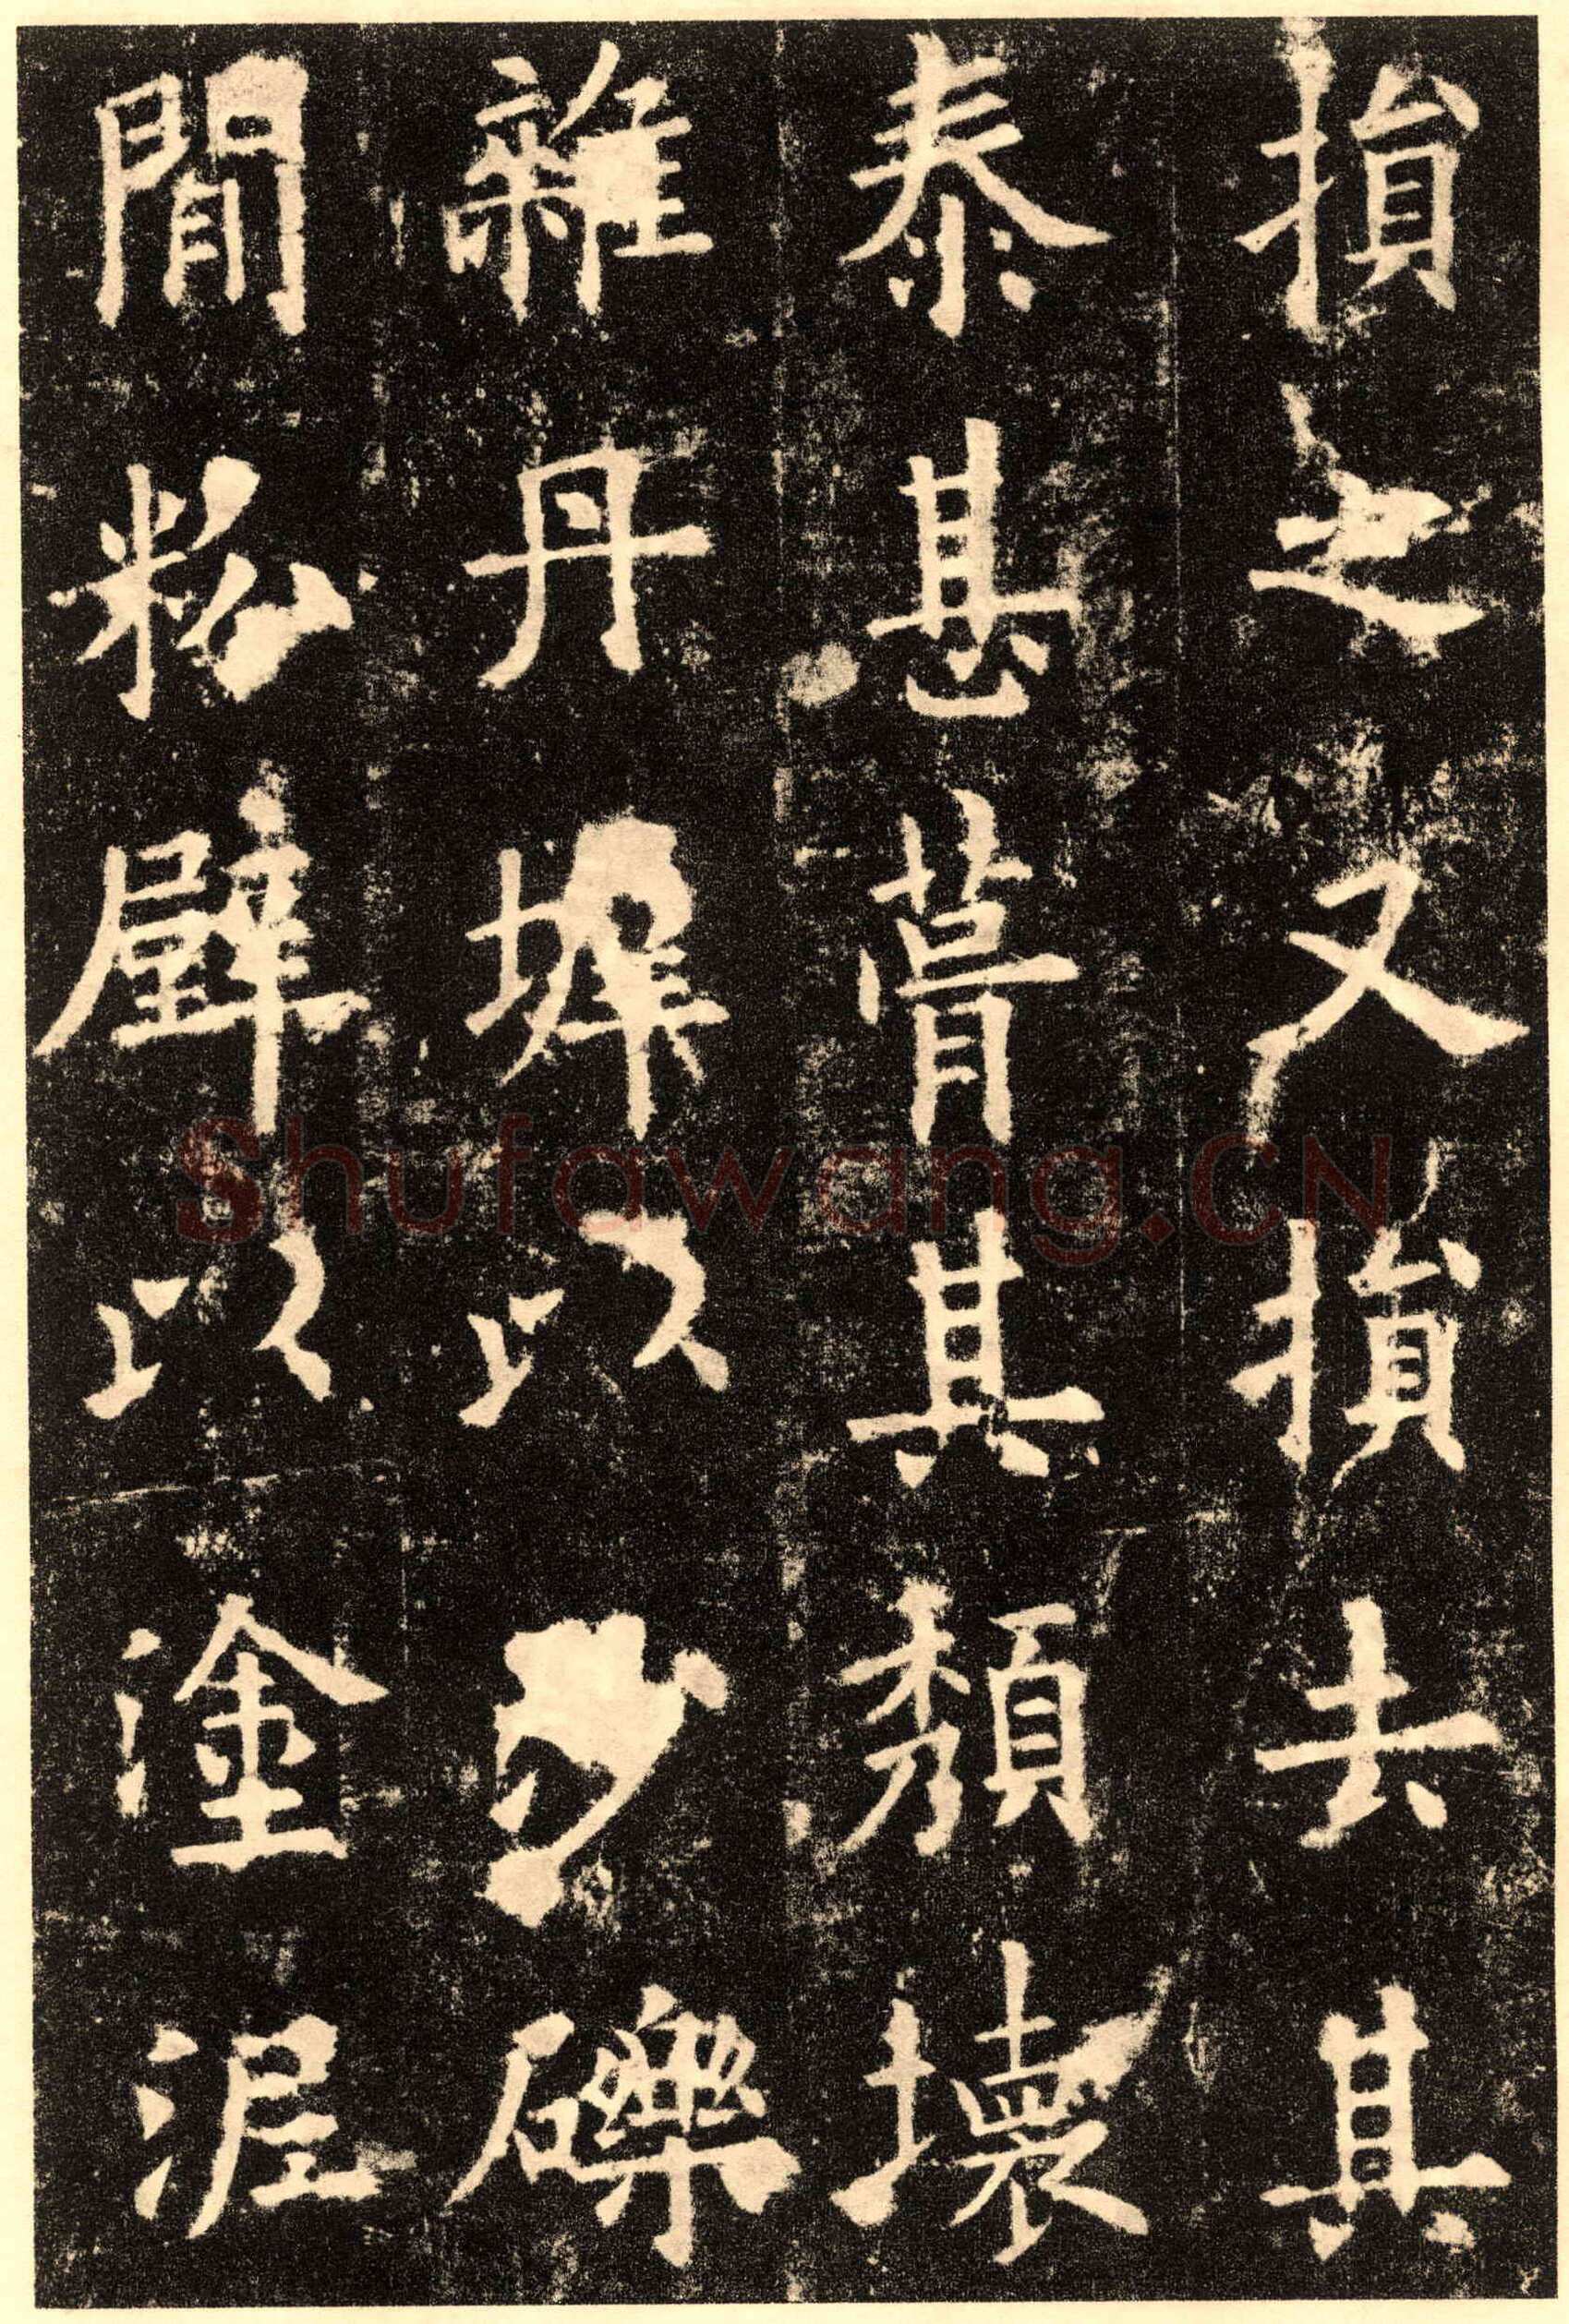 損之又損去其
泰甚葺其頹壞
雜丹墀以沙礫
間粉壁以塗泥
Shufawang.CN